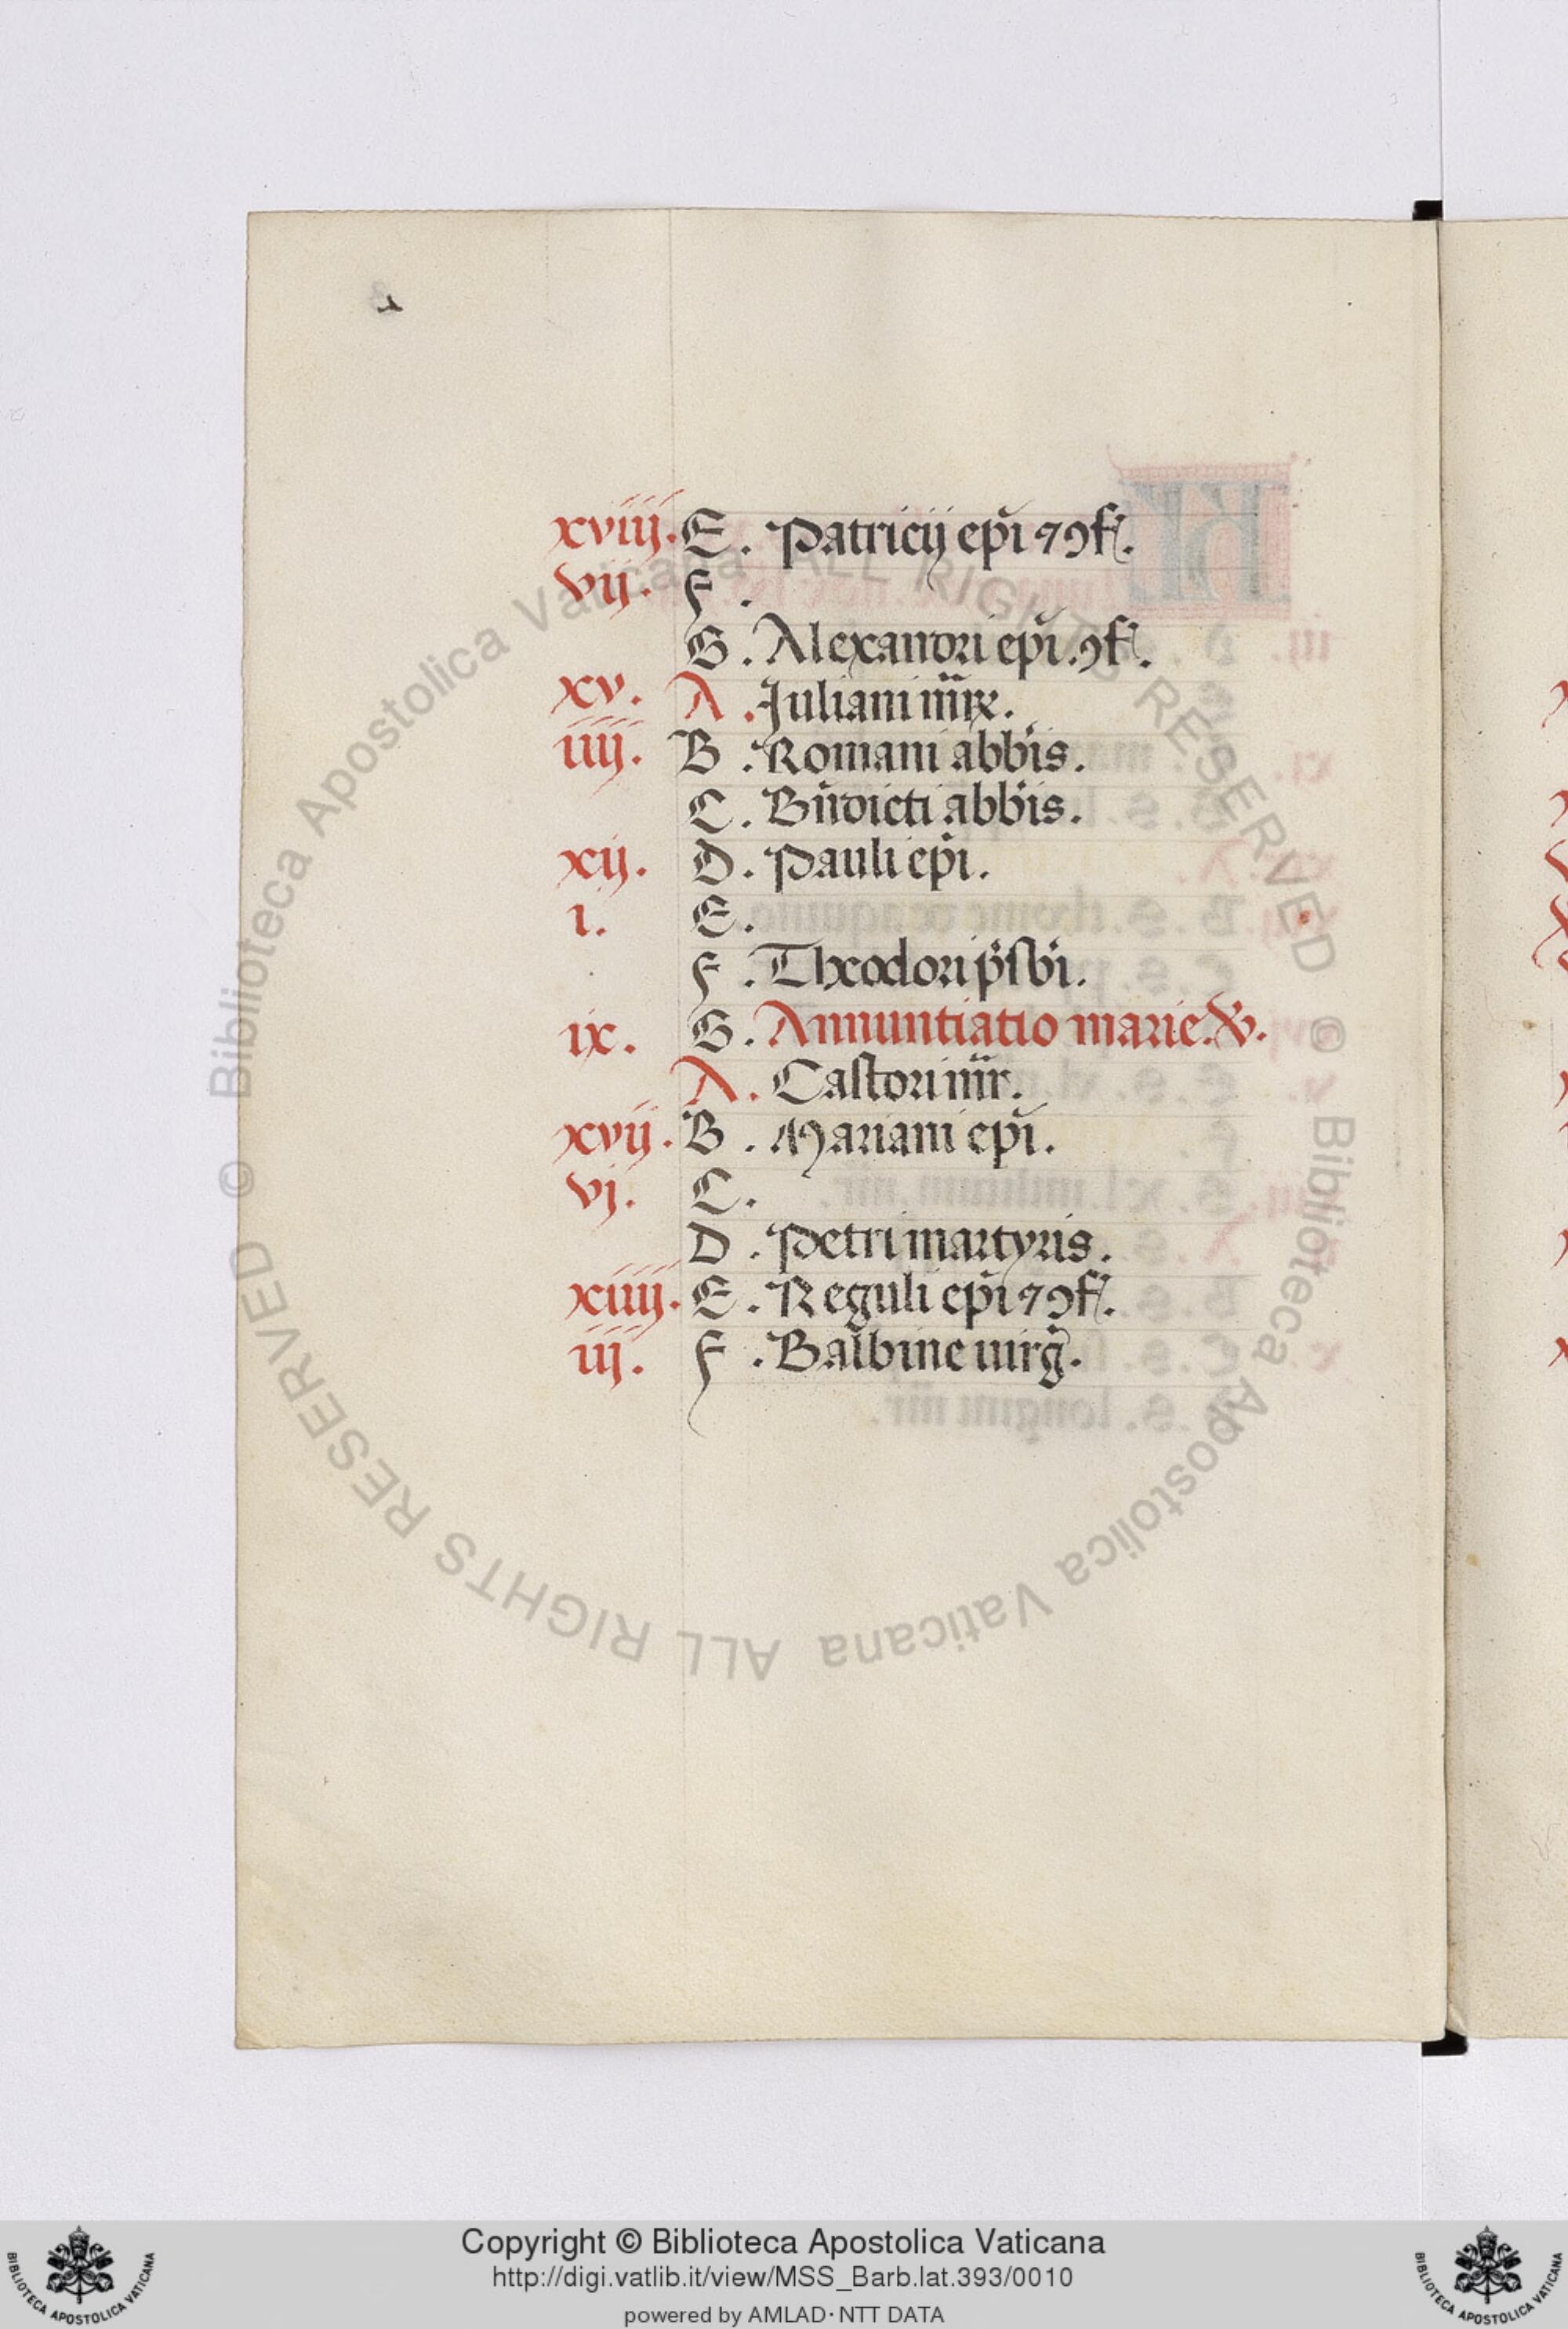 xviii. E. Patricij ep̄i ⁊ ꝯf.
vij. F.
G. Alexandri ep̄i. ꝯf.
xv. A. Juliani m̄rꝝ.
iiij. B. Romani abb̄is.
C. Bn̄dicti abb̄is.
xij. D. Pauli ep̄i.
i. E.
F. Theodori p̄sb̄i.
ix. G. Annuntiatio marie. V.
A. Castori m̄r.
xvij. B. Mariani ep̄i.
vj. C.
D. Petri martyris.
xiiij. E. Reguli ep̄i ⁊ ꝯf.
iij. F. Balbine uirḡ.
© Biblioteca Apostolica Vaticana ALL RIGHTS RESERVED © Biblioteca Apostolica Vaticana ALL RIGHTS RESERVED
Copyright © Biblioteca Apostolica Vaticana
http://digi.vatlib.it/view/MSS_Barb.lat.393/0010
powered by AMLAD·NTT DATA
BIBLIOTECA APOSTOLICA VATICANA
BIBLIOTECA APOSTOLICA VATICANA